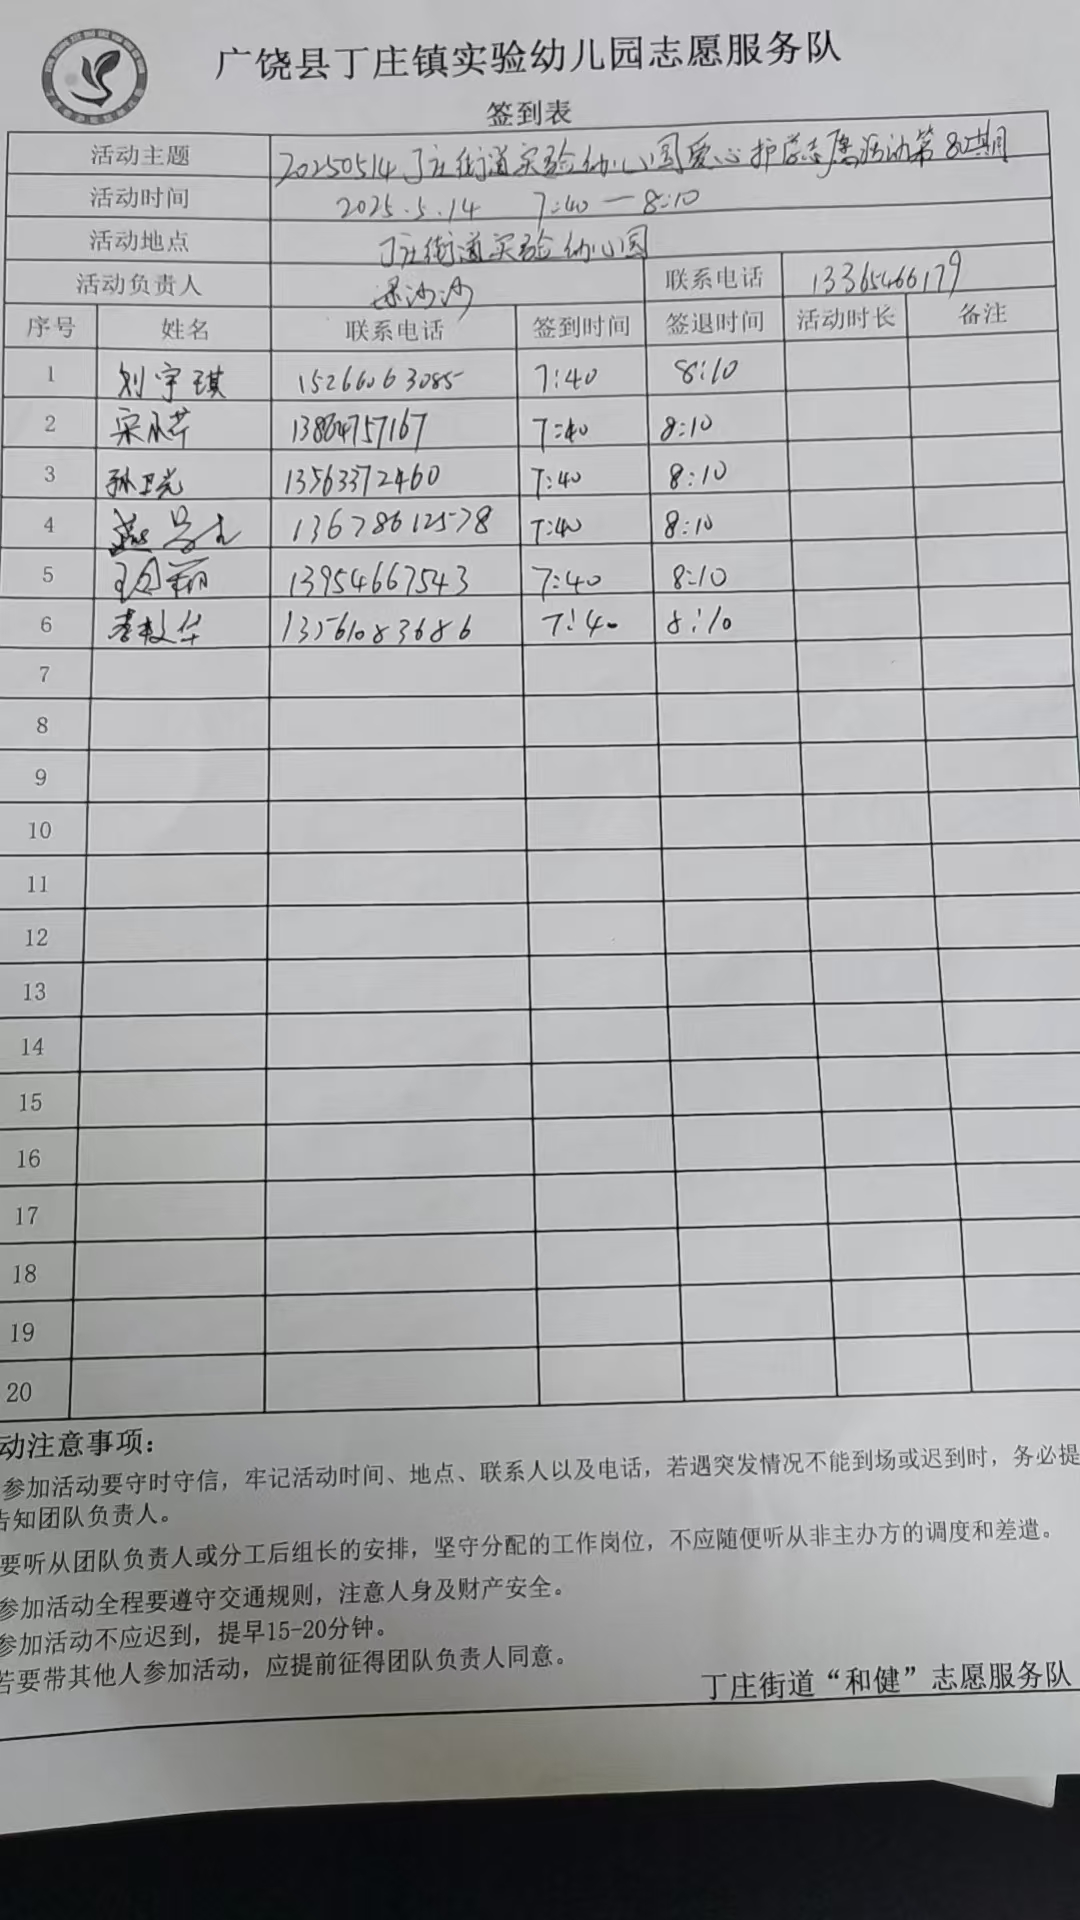 广饶县丁庄镇实验幼儿园志愿服务队
签到表
活动主题 20250514丁庄街道实验幼儿园爱心护学志愿活动第82期
活动时间 2025.5.14 7:40—8:10
活动地点 丁庄街道实验幼儿园
活动负责人 梁沙沙 联系电话 13365466179
序号 姓名 联系电话 签到时间 签退时间 活动时长 备注
1 刘宇琪 15266063085 7:40 8:10
2 宋 13864757167 7:40 8:10
3 孙卫光 13563372460 7:40 8:10
4 燕 13678612578 7:40 8:10
5 王 13954667543 7:40 8:10
6 李 华 13561083686 7:40 8:10
7
8
9
10
11
12
13
14
15
16
17
18
19
20
动注意事项：
参加活动要守时守信，牢记活动时间、地点、联系人以及电话，若遇突发情况不能到场或迟到时，务必提
告知团队负责人。
要听从团队负责人或分工后组长的安排，坚守分配的工作岗位，不应随便听从非主办方的调度和差遣。
参加活动全程要遵守交通规则，注意人身及财产安全。
参加活动不应迟到，提早15-20分钟。
若要带其他人参加活动，应提前征得团队负责人同意。
丁庄街道“和健”志愿服务队